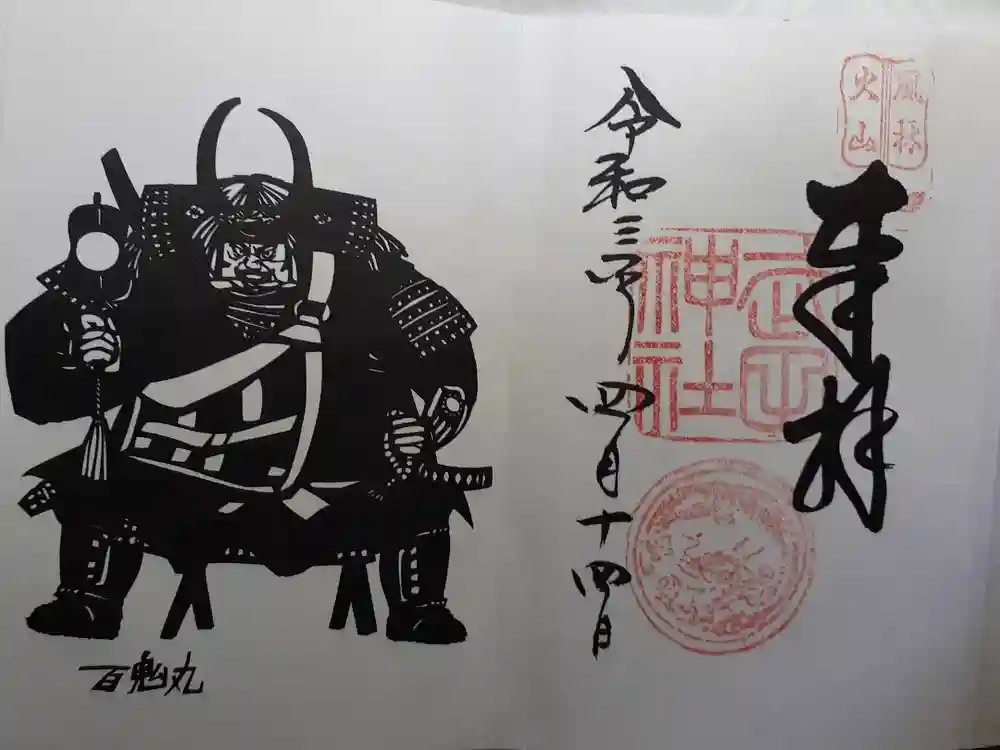 風林
火山
奉拝
武田
神社
令和三年
四月十四日
百鬼丸